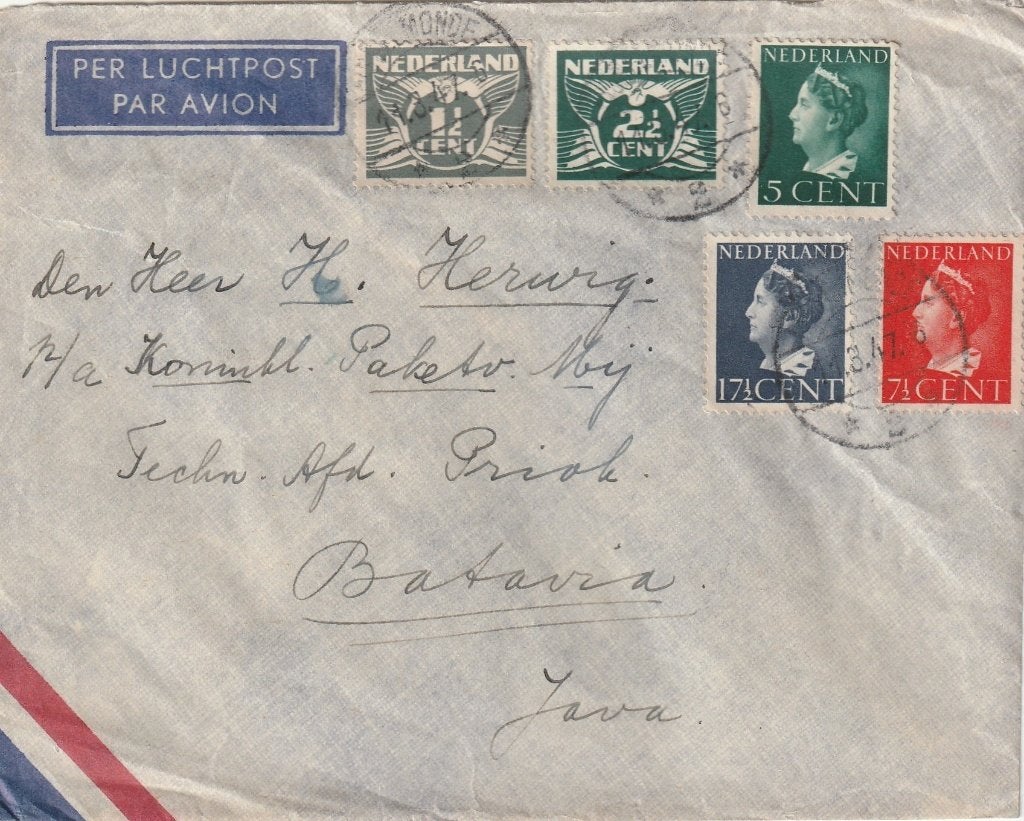 PER LUCHTPOST
PAR AVION
NEDERLAND
1½
CENT
NEDERLAND
2½
CENT
NEDERLAND
5 CENT
NEDERLAND
17½ CENT
NEDERLAND
7½ CENT
Den Heer H. Herwig.
p/a Koninkl. Paketv. Mij
Techn. Afd. Priok.
Batavia.
Java.